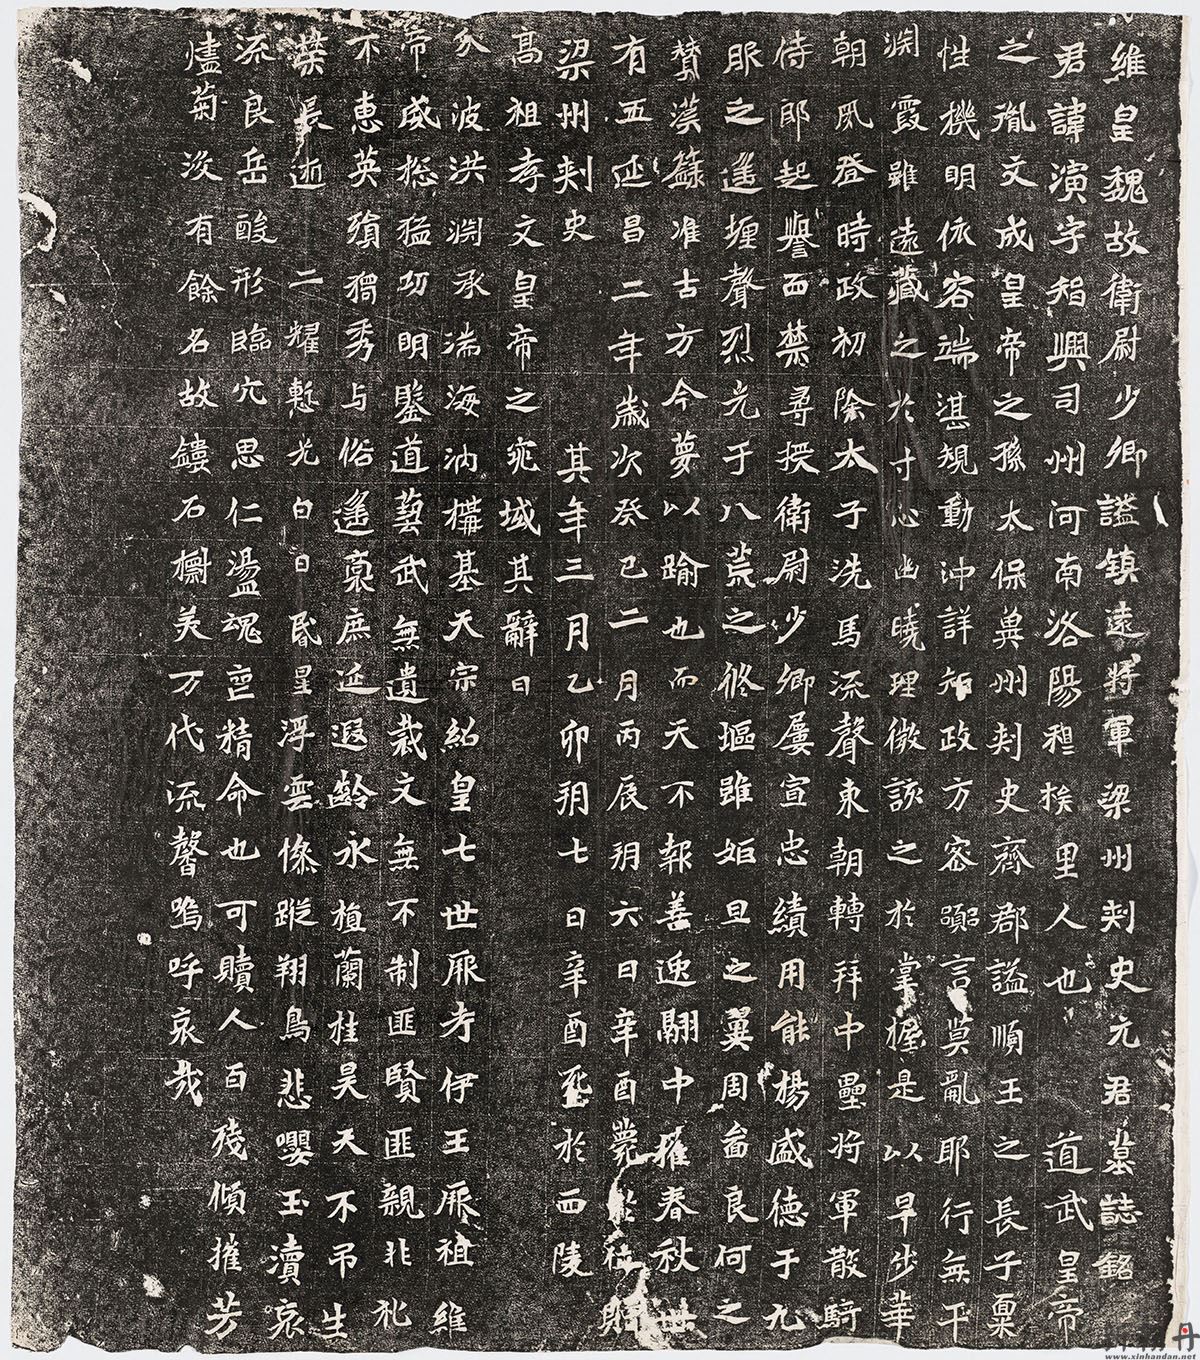 維皇魏故衛尉少卿謚鎮遠將軍梁州刾史元君墓誌銘
君諱演字智興司州河南洛陽穆族里人也 道武皇帝
之胤文成皇帝之孫太保兾州刾史齊郡謚順王之長子稟
性機明依容端湛規動沖詳知政方密顯言莫亂耶行無平
渊霞雖遠藏之於寸心幽曉理微該之於掌握是以早步華
朝夙登時政初除太子洗馬流聲東朝轉拜中壘將軍散騎
侍郎起譽西禁尋授衛尉少卿屢宣忠績用能楊盛德于九
服之遥堙聲烈光于八荒之脩塸雖姬旦之翼周畱良何之
賛漢籙准古方今夢以踰也而天不報善迻翮中摧春秋卅
有五延昌二年歲次癸巳二月丙辰朔六日辛酉薨於徒贈
梁州刾史 其年三月乙卯朔七日辛酉窆於西陵
高祖孝文皇帝之兆域其辭曰
分波洪渊承湍海汭構基天宗紹皇七世厥考伊王厥祖維
帝咸摠猛功明鑒道藝武無遺裁文無不制匪賢匪親非礼
不惠英殞獨秀与俗遥裛庶延遐齡永植蘭桂昊天不吊生
榮長逝 二耀慙光白日昏星浮雲條蹤翔鳥悲嚶玉瀆哀
流良岳酸形臨穴思仁盪魂啚精命也可贖人百殘傾摧芳
燼菊沒有餘名故鏤石櫥美万代流馨嗚呼哀哉
www.xinhandan.net